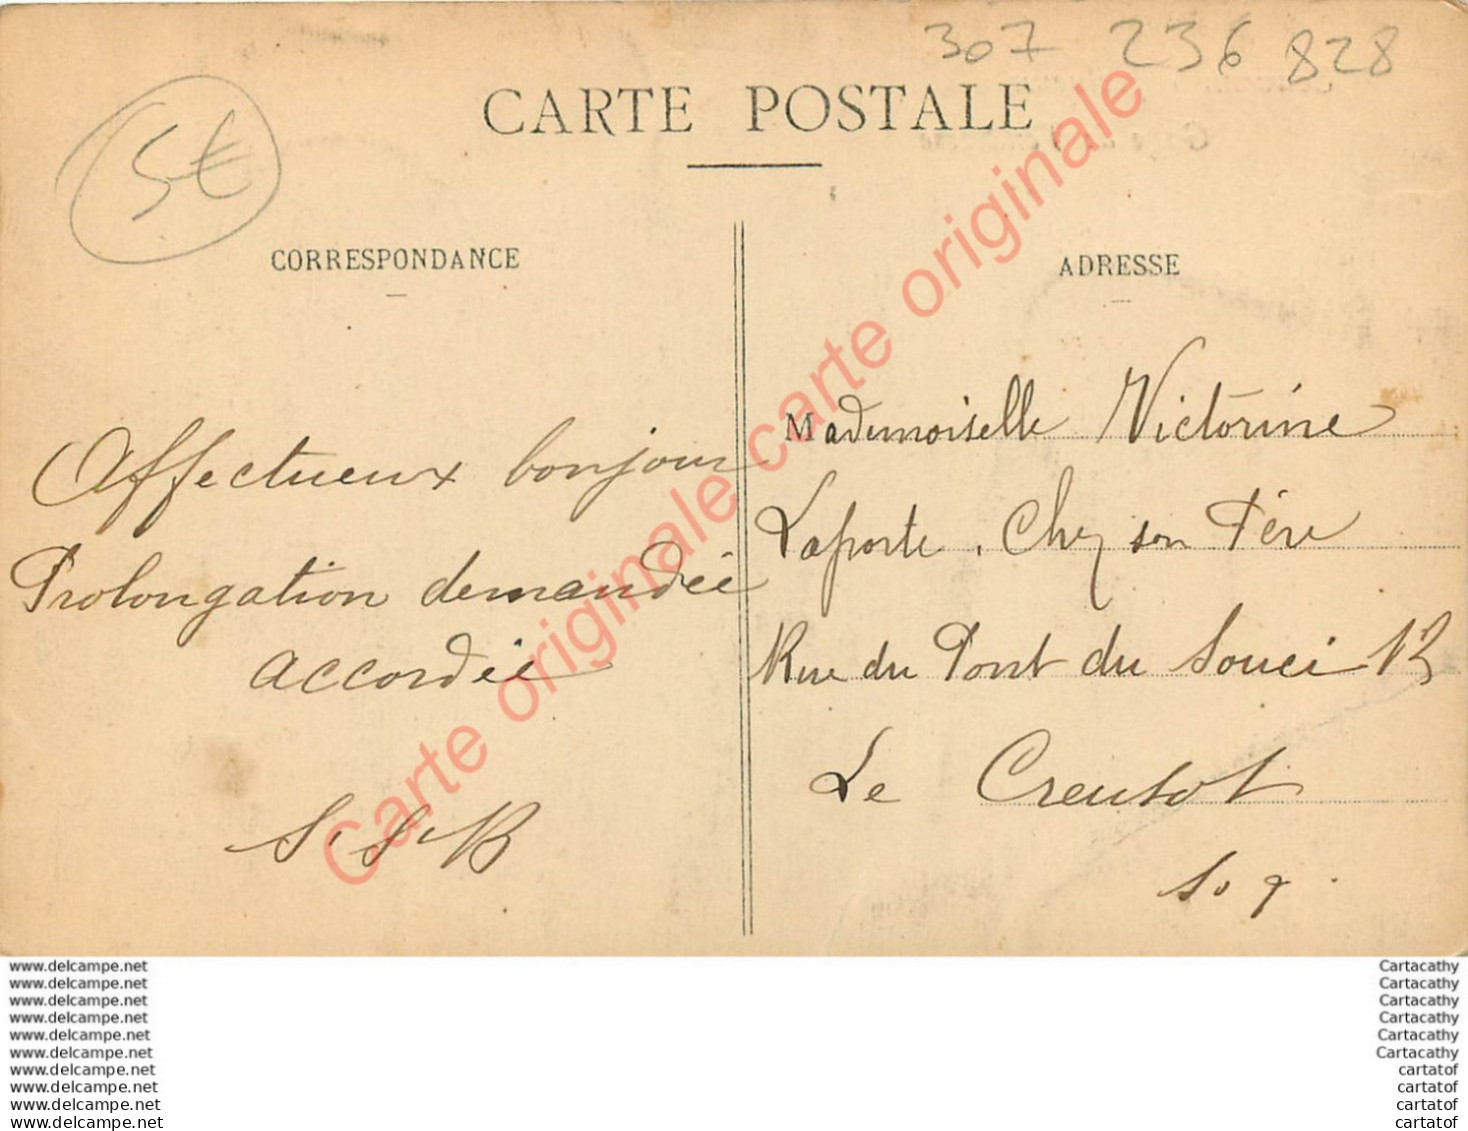 307 236 828
CARTE POSTALE
5€
CORRESPONDANCE
ADRESSE
Affectueux bonjour
Prolongation demandée
accordée
Mademoiselle Victorine
Laporte, Chez son Père
Rue du Pont du Souci
Le Creusot
Carte originale carte originale
www.delcampe.net
www.delcampe.net
www.delcampe.net
www.delcampe.net
www.delcampe.net
www.delcampe.net
www.delcampe.net
www.delcampe.net
www.delcampe.net
www.delcampe.net
Cartacathy
Cartacathy
Cartacathy
Cartacathy
Cartacathy
Cartacathy
cartatof
cartatof
cartatof
cartatof